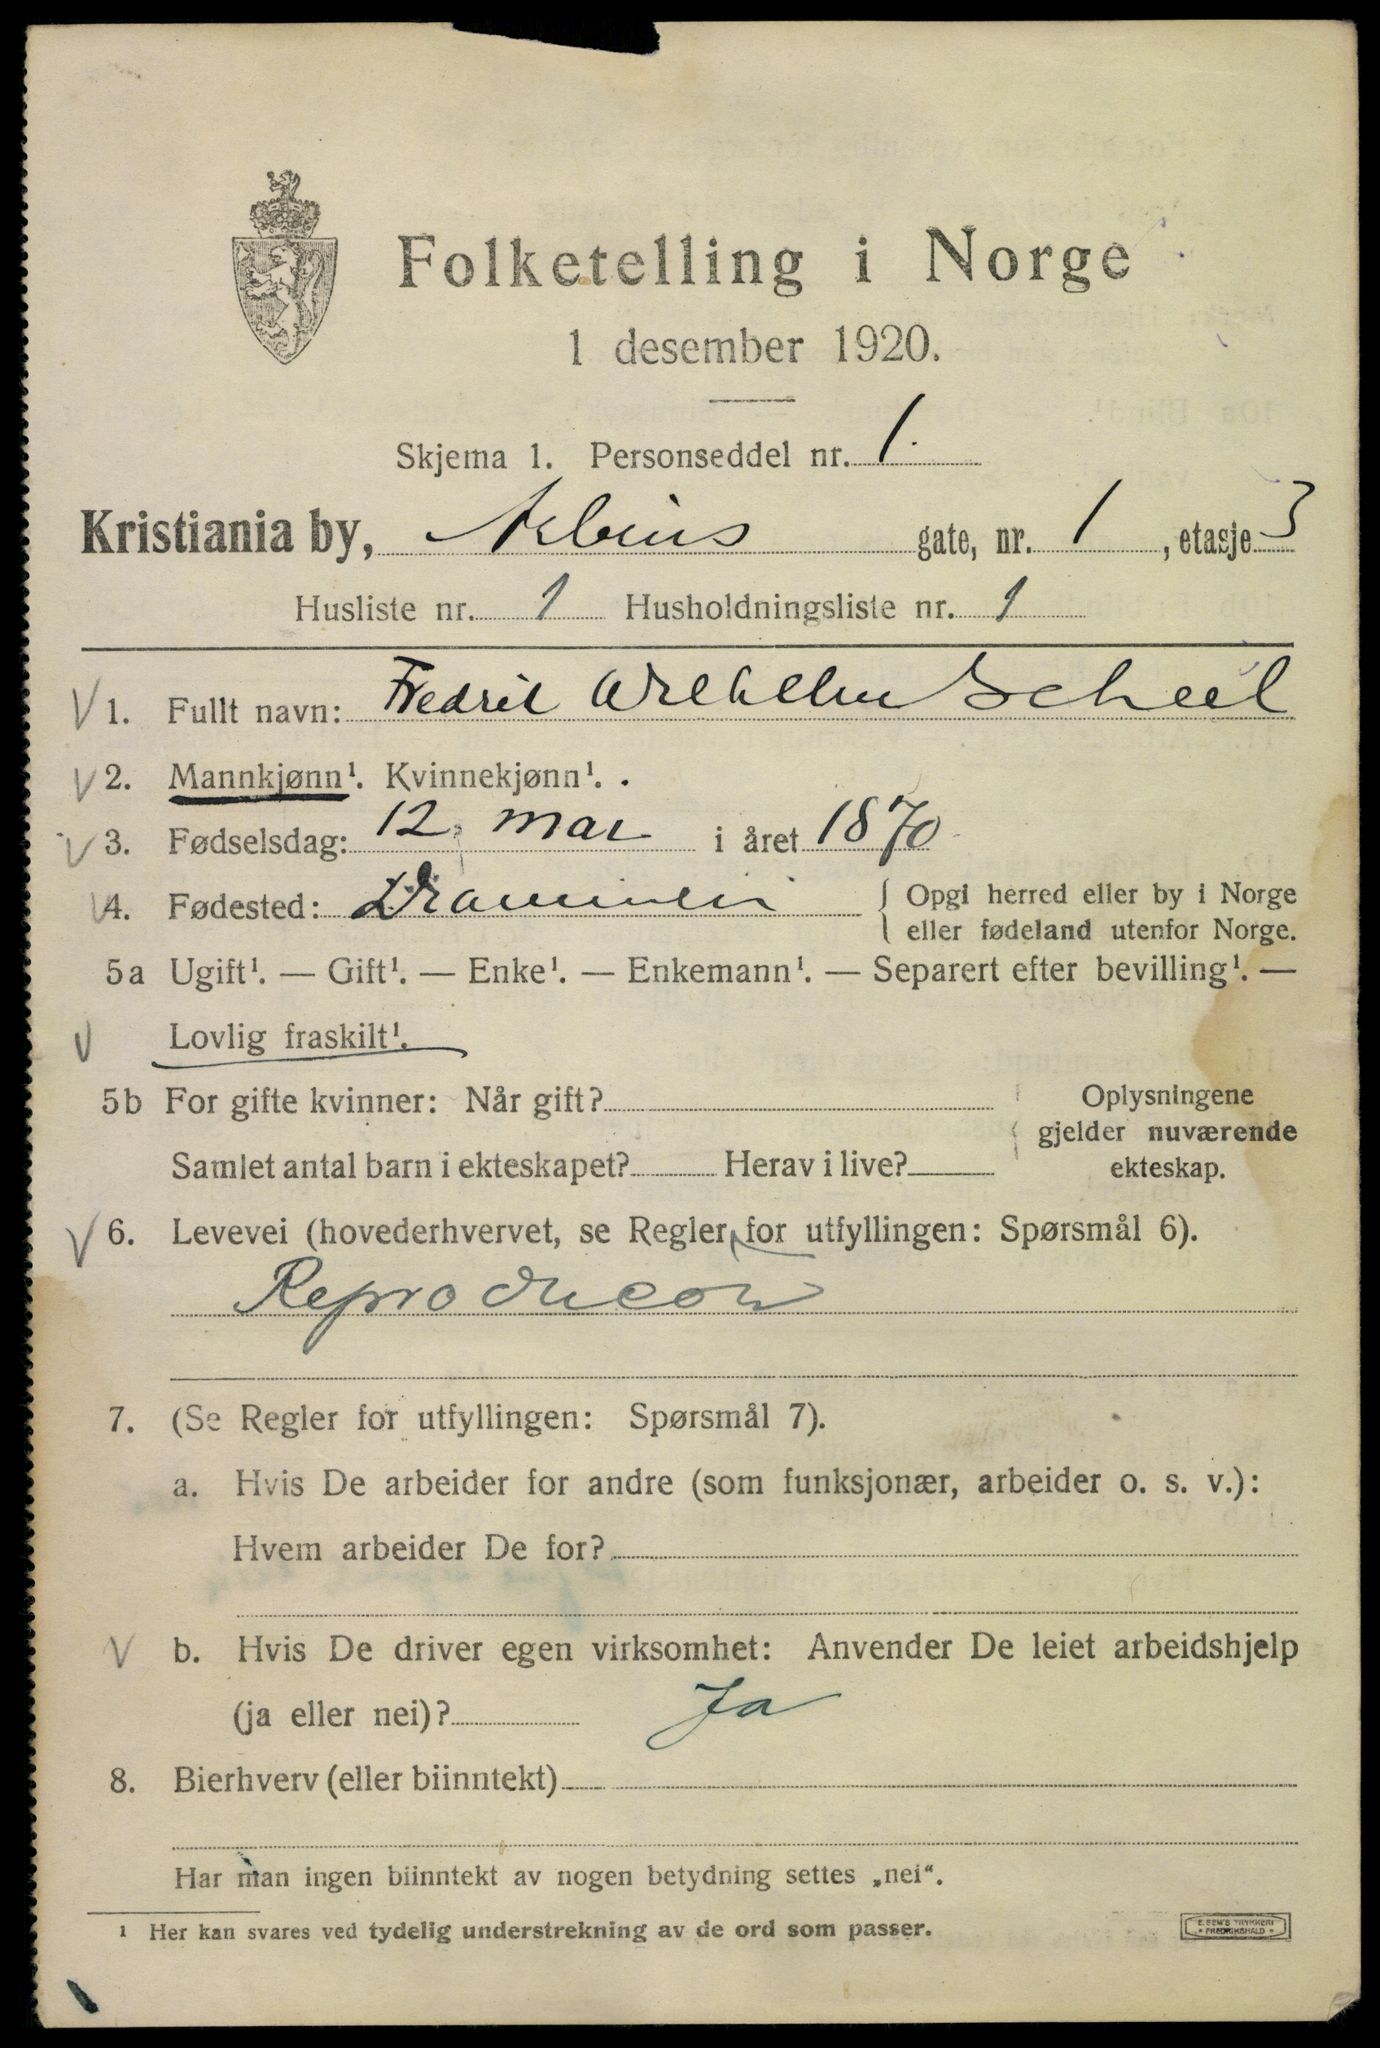 Folketelling i Norge
1 desember 1920.
Skjema 1. Personseddel nr. 1.
Kristiania by, Arbins gate, nr. 1, etasje 3
Husliste nr. 1 Husholdningsliste nr. 1
1. Fullt navn: Fredrik Wilhelm Scheel
2. Mannkjønn¹. Kvinnekjønn¹.
3. Fødselsdag: 12 mai i året 1870
4. Fødested: Drammen { Opgi herred eller by i Norge
eller fødeland utenfor Norge.
5a Ugift¹. — Gift¹. — Enke¹. — Enkemann¹. — Separert efter bevilling¹. —
Lovlig fraskilt¹.
5b For gifte kvinner: Når gift? Oplysningene
gjelder nuværende
Samlet antal barn i ekteskapet? Herav i live? ekteskap.
6. Levevei (hovederhvervet, se Regler for utfyllingen: Spørsmål 6).
7. (Se Regler for utfyllingen: Spørsmål 7).
a. Hvis De arbeider for andre (som funksjonær, arbeider o. s. v.):
Hvem arbeider De for?
b. Hvis De driver egen virksomhet: Anvender De leiet arbeidshjelp
(ja eller nei)? Ja
8. Bierhverv (eller biinntekt)
Har man ingen biinntekt av nogen betydning settes „nei“.
1 Her kan svares ved tydelig understrekning av de ord som passer.
E. SEM'S TRYKKERI
• FREDRIKSHALD •